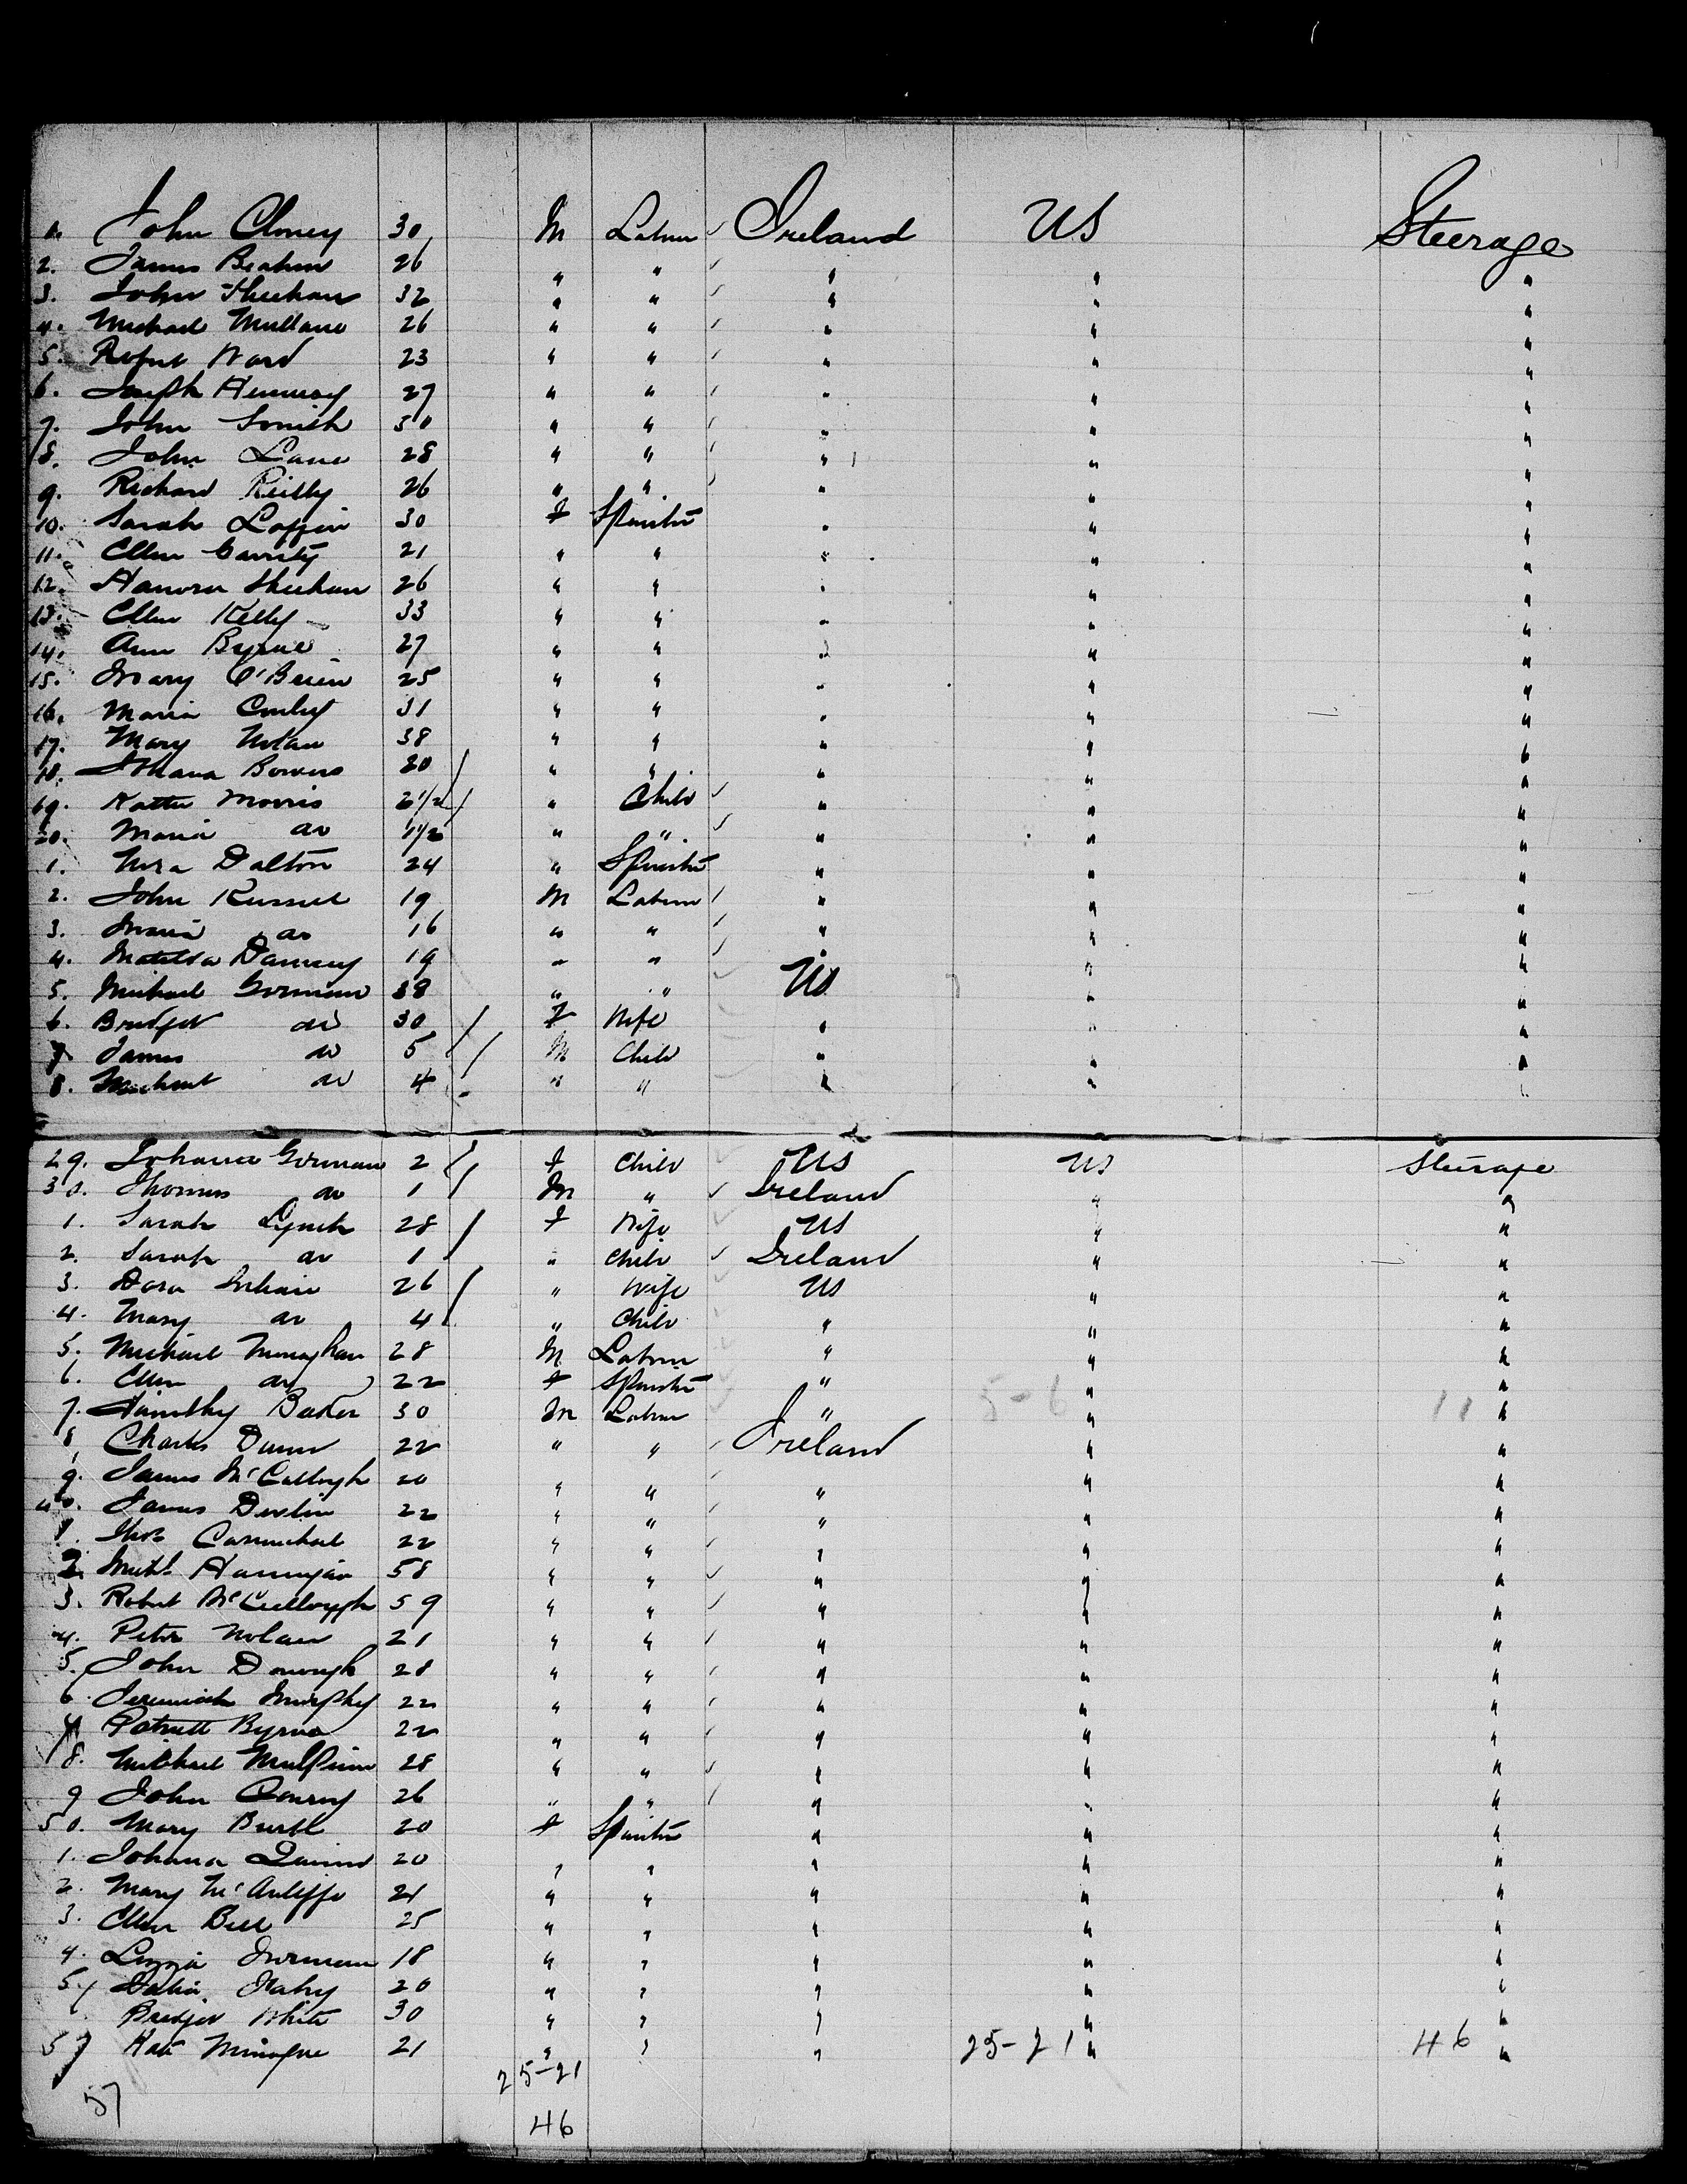 1. John Cloney 30 M Labour Ireland US Steerage
2. James Beahan 26 " " " " "
3. John Sheehan 32 " " " " "
4. Michael Mullane 26 " " " " "
5. Ward 23 " " " " "
6. Joseph 27 " " " " "
7. John Smith 30 " " " " "
8. John Lane 28 " " " " "
9. Richard Reilly 26 " " " " "
10. Sarah 30 F Spinster " " "
11. Ellen 21 " " " " "
12. Hanora Sheehan 26 " " " " "
13. Ellen Kelly 33 " " " " "
14. Ann Byrne 27 " " " " "
15. Mary O'Brien 25 " " " " "
16. Maria 31 " " " " "
17. Mary Nolan 38 " " " " "
18. Johana Bowers 20 " " " " "
19. Katie Morris 2 1/2 " Child " " "
20. Maria do 1 1/2 " " " " "
1. Nora Dalton 24 " Spinster " " "
2. John Russell 19 M Labour " " "
3. Maria do 16 " " " " "
4. Matilda 19 " " " " "
5. Michael Gorman 38 " " US " "
6. Bridget do 30 F Wife " " "
7 James do 5 M Child " " "
8. Michael do 4 " " " " "
29. Johanna Gorman 2 F Child US US Steerage
30. Thomas do 1 M " Ireland " "
1. Sarah Lynch 28 F Wife US " "
2. Sarah do 1 " Child Ireland " "
3. Dora 26 " Wife US " "
4. Mary do 4 " Child " " "
5. Michael Monaghan 28 M Labour " " "
6. Ellen do 22 F Spinster " " "
7. Timothy Baker 30 M Labour " 5-6 " 11 "
8. Charles Dunn 22 " " Ireland " "
9. James McCullogh 20 " " " " "
40. James Devlin 22 " " " " "
1. Thos Carmichael 22 " " " " "
2. Michl Hannigan 58 " " " " "
3. Robert McCullough 59 " " " " "
4. Peter Nolan 21 " " " " "
5. John Donough 28 " " " " "
6. Jeremiah Murphy 22 " " " " "
7 Patrick Byrne 22 " " " " "
8. Michael 28 " " " " "
9 John Conroy 26 " " " " "
50. Mary 20 F Spinster " " "
1. Johana Quinn 20 " " " " "
2. Mary McAuliffe 21 " " " " "
3. Ellen Bell 25 " " " " "
4. Lizzie 18 " " " " "
5. Delia Fahy 20 " " " " "
Bridget White 30 " " " " "
57 Kate Minogue 21 " " " 25-21 " 46 "
25-21
57
46